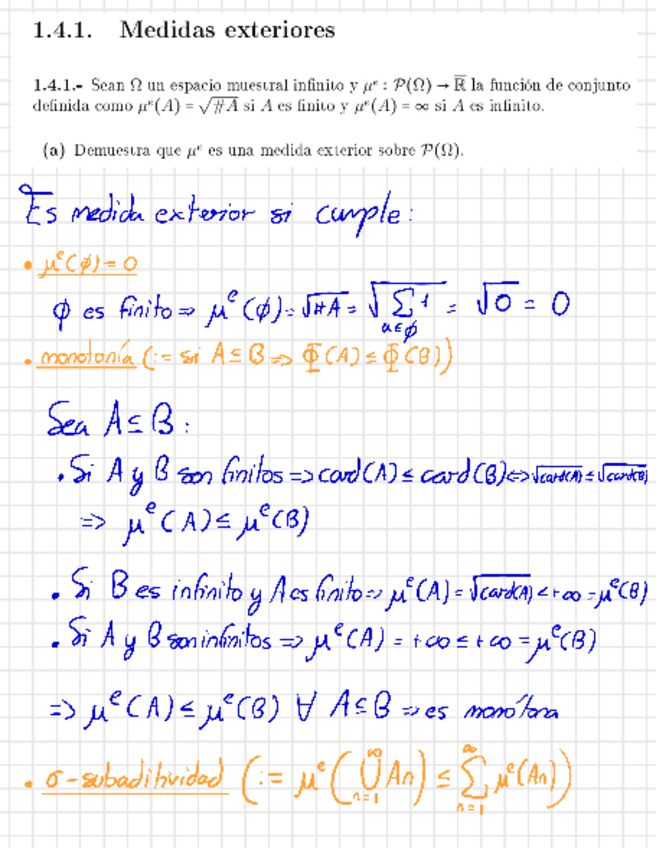 1.4.1. Medidas exteriores
1.4.1.- Sean Ω un espacio muestral infinito y μᵉ : 𝒫(Ω) → ℝ̅ la función de conjunto
definida como μᵉ(A) = √#A si A es finito y μᵉ(A) = ∞ si A es infinito.
(a) Demuestra que μᵉ es una medida exterior sobre 𝒫(Ω).
Es medida exterior si cumple:
• μᵉ(∅) = 0
∅ es finito ⇒ μᵉ(∅) = √#A = √(∑_{a∈∅} 1) = √0 = 0
• monotonía (:= si A ⊆ B ⇒ Φ(A) ≤ Φ(B))
Sea A ⊆ B :
. Si A y B son finitos ⇒ card(A) ≤ card(B) ⇔ √card(A) ≤ √card(B)
⇒ μᵉ(A) ≤ μᵉ(B)
. Si B es infinito y A es finito ⇒ μᵉ(A) = √card(A) < +∞ = μᵉ(B)
. Si A y B son infinitos ⇒ μᵉ(A) = +∞ ≤ +∞ = μᵉ(B)
⇒ μᵉ(A) ≤ μᵉ(B) ∀ A ⊆ B ⇒ es monótona
• σ-subaditividad (:= μᵉ(⋃_{n=1}^{∞} An) ≤ ∑_{n=1}^{∞} μᵉ(An))